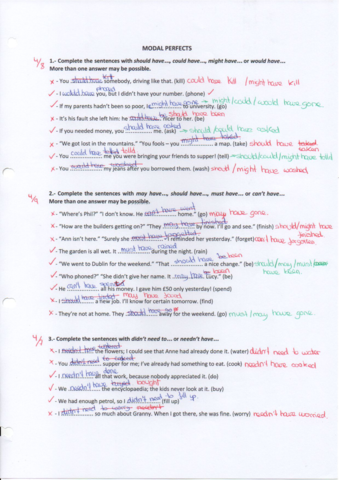 MODAL PERFECTS
4/8 1.- Complete the sentences with should have..., could have..., might have... or would have...
More than one answer may be possible.
x - You should have somebody, driving like that. (kill) could have kill /might have kill
✓ - I would have phoned you, but I didn't have your number. (phone) ✓
✓ - If my parents hadn't been so poor, to university. (go) → might/could/would have gone
x - It's his fault she left him: he nicer to her. (be) should have been
✓ - If you needed money, you should have asked me. (ask) → should/could have asked
x - "We got lost in the mountains." "You fools – you might have a map. (take) should have taken
✓ - You could have told me you were bringing your friends to supper! (tell) → should/could/might have told
x - You my jeans after you borrowed them. (wash) should / might have washed
2.- Complete the sentences with may have..., should have..., must have... or can't have...
More than one answer may be possible.
x - "Where's Phil?" "I don't know. He home." (go) may have gone.
x - "How are the builders getting on?" "They by now. I'll go and see." (finish) should/might have finished
x - "Ann isn't here." "Surely she – I reminded her yesterday." (forget) can't have forgotten
✓ - The garden is all wet. It must have rained during the night. (rain)
✓ - "We went to Dublin for the weekend." "That should have been a nice change." (be) should/may/must have been
✓ - "Who phoned?" "She didn't give her name. It may have been Lucy." (be)
✓ - He can't have all his money. I gave him £50 only yesterday! (spend)
x - I a new job. I'll know for certain tomorrow. (find) may have found.
x - They're not at home. They should have away for the weekend. (go) must/may have gone
3.- Complete the sentences with didn't need to... or needn't have...
x - I the flowers; I could see that Anne had already done it. (water) didn't need to water
x - You supper for me; I've already had something to eat. (cook) needn't have cooked
✓ - I needn't have done all that work, because nobody appreciated it. (do)
✓ - We needn't have bought the encyclopaedia; the kids never look at it. (buy)
✓ - We had enough petrol, so I didn't need to fill up. (fill up)
x - I so much about Granny. When I got there, she was fine. (worry) needn't have worried.